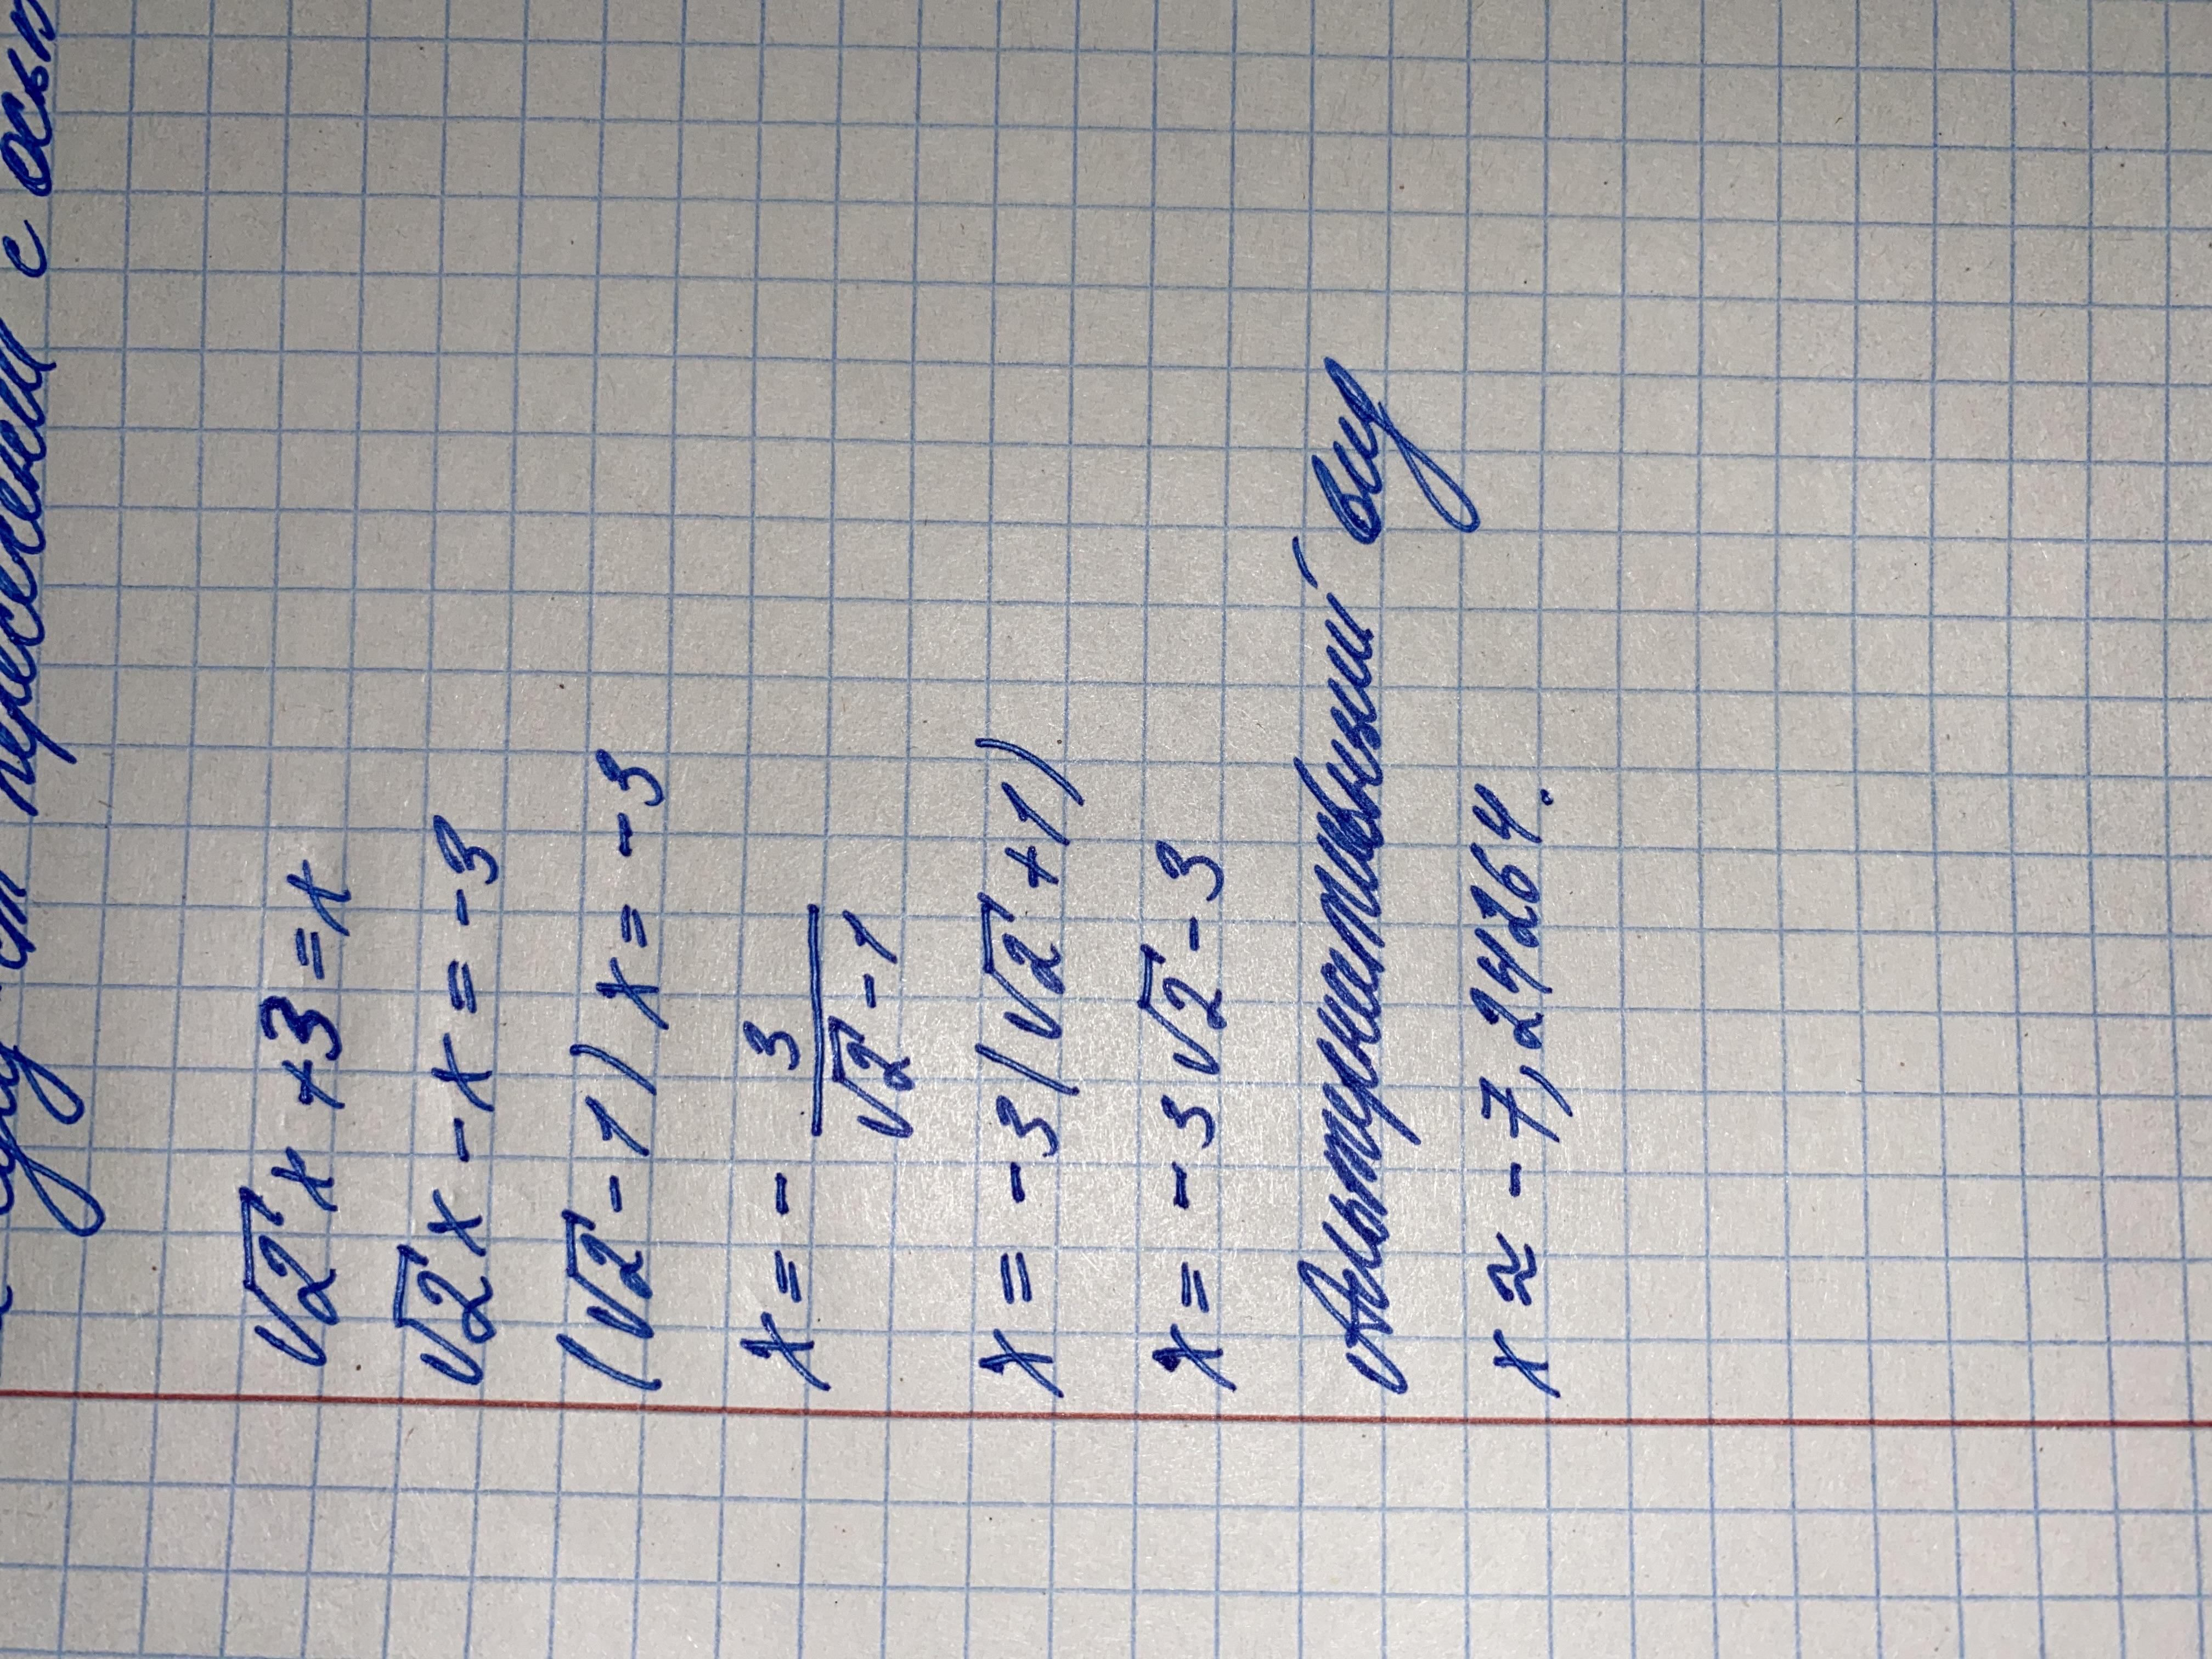 пересечения с осью
√2x + 3 = x
√2x - x = -3
(√2 - 1) x = -3
x = - 3/(√2 - 1)
x = -3 (√2 + 1)
x = -3√2 - 3
Альтернативный вид
x ≈ -7,24264.